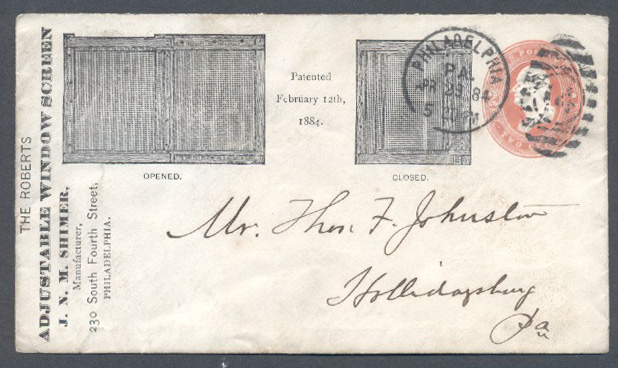 THE ROBERTS
ADJUSTABLE WINDOW SCREEN
J. N. M. SHIMER,
Manufacturer,
230 South Fourth Street,
PHILADELPHIA.
OPENED.
Patented
February 12th,
1884.
CLOSED.
PHILADELPHIA
PA.
APR 23 84
5 PM
Mr. Thos. F. Johnston
Hollidaysburg
Pa